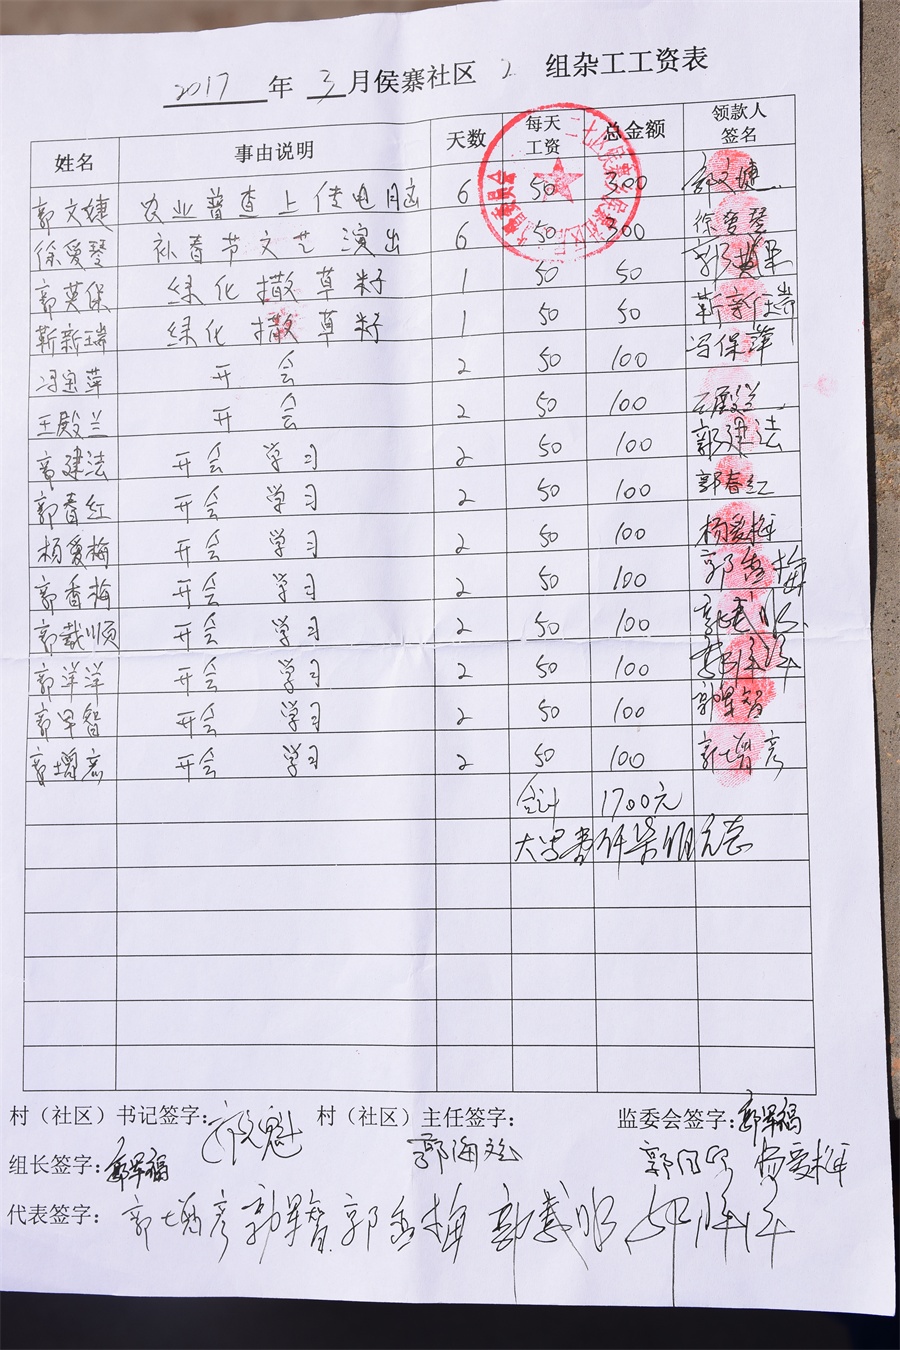 2017 年 3 月侯寨社区 2 组杂工工资表
姓名 事由说明 天数 每天工资 总金额 领款人签名
郭文婕 农业普查上传电脑 6 50 300 郭文婕
徐爱琴 补春节文艺演出 6 50 300 徐爱琴
郭英保 绿化撒草籽 1 50 50
靳新瑞 绿化撒草籽 1 50 50 靳新瑞
冯宝萍 开会 2 50 100 冯保萍
王殿兰 开会 2 50 100 王殿兰
郭建法 开会 学习 2 50 100 郭建法
郭春红 开会 学习 2 50 100 郭春红
杨爱梅 开会 学习 2 50 100 杨爱梅
郭香梅 开会 学习 2 50 100 郭香梅
郭载顺 开会 学习 2 50 100
郭洋洋 开会 学习 2 50 100 郭洋洋
郭军智 开会 学习 2 50 100 郭军智
郭增彦 开会 学习 2 50 100 郭增彦
合计 1700元
大写壹仟柒佰元
村（社区）书记签字： 村（社区）主任签字： 监委会签字：郭军福
郭海
组长签字：郭军福 杨爱梅
代表签字：郭增彦 郭军智 郭香梅